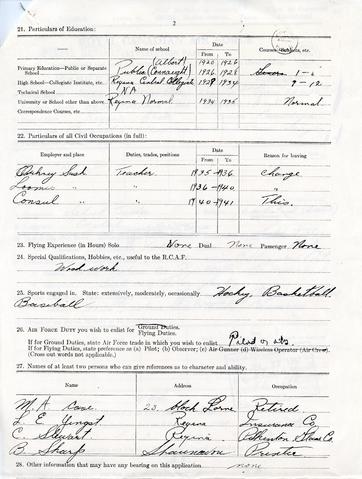 2
21. Particulars of Education:
Name of school Date From To Courses, Subjects, etc.
Primary Education—Public or Separate School (Albert) 1920 1926
Public (Connaught) 1926 1928 1-8
High School—Collegiate Institute, etc. Regina Central Collegiate 1928 1934 9-12
Technical School N A
University or School other than above Regina Normal 1934 1935 Normal
Correspondence Courses, etc.
22. Particulars of all Civil Occupations (in full):
Employer and place Duties, trades, positions Date From To Reason for leaving
Sask Teacher. 1935 1936. Change
Loomis " " 1936 1940. "
Consul " " 1940 1941 This.
23. Flying Experience (in Hours) Solo None Dual None Passenger None
24. Special Qualifications, Hobbies, etc., useful to the R.C.A.F.
Wood work
25. Sports engaged in. State: extensively, moderately, occasionally Hockey, Basketball.
Baseball
26. Air Force Duty you wish to enlist for Ground Duties. Flying Duties.
If for Ground Duties, state Air Force trade in which you wish to enlist Pilot or obs.
If for Flying Duties, state preference as (a) Pilot; (b) Observer; (c) Air Gunner (d) Wireless Operator (Air Crew).
(Cross out words not applicable.)
27. Names of at least two persons who can give references as to character and ability.
Name Address Occupation
M. A. Case. 23 Block Lorne Retired
L E Yingst Regina Insurance Co
C. Stewart Regina Stone Co.
B. Sharp Shaunavon
28. Other information that may have any bearing on this application. none